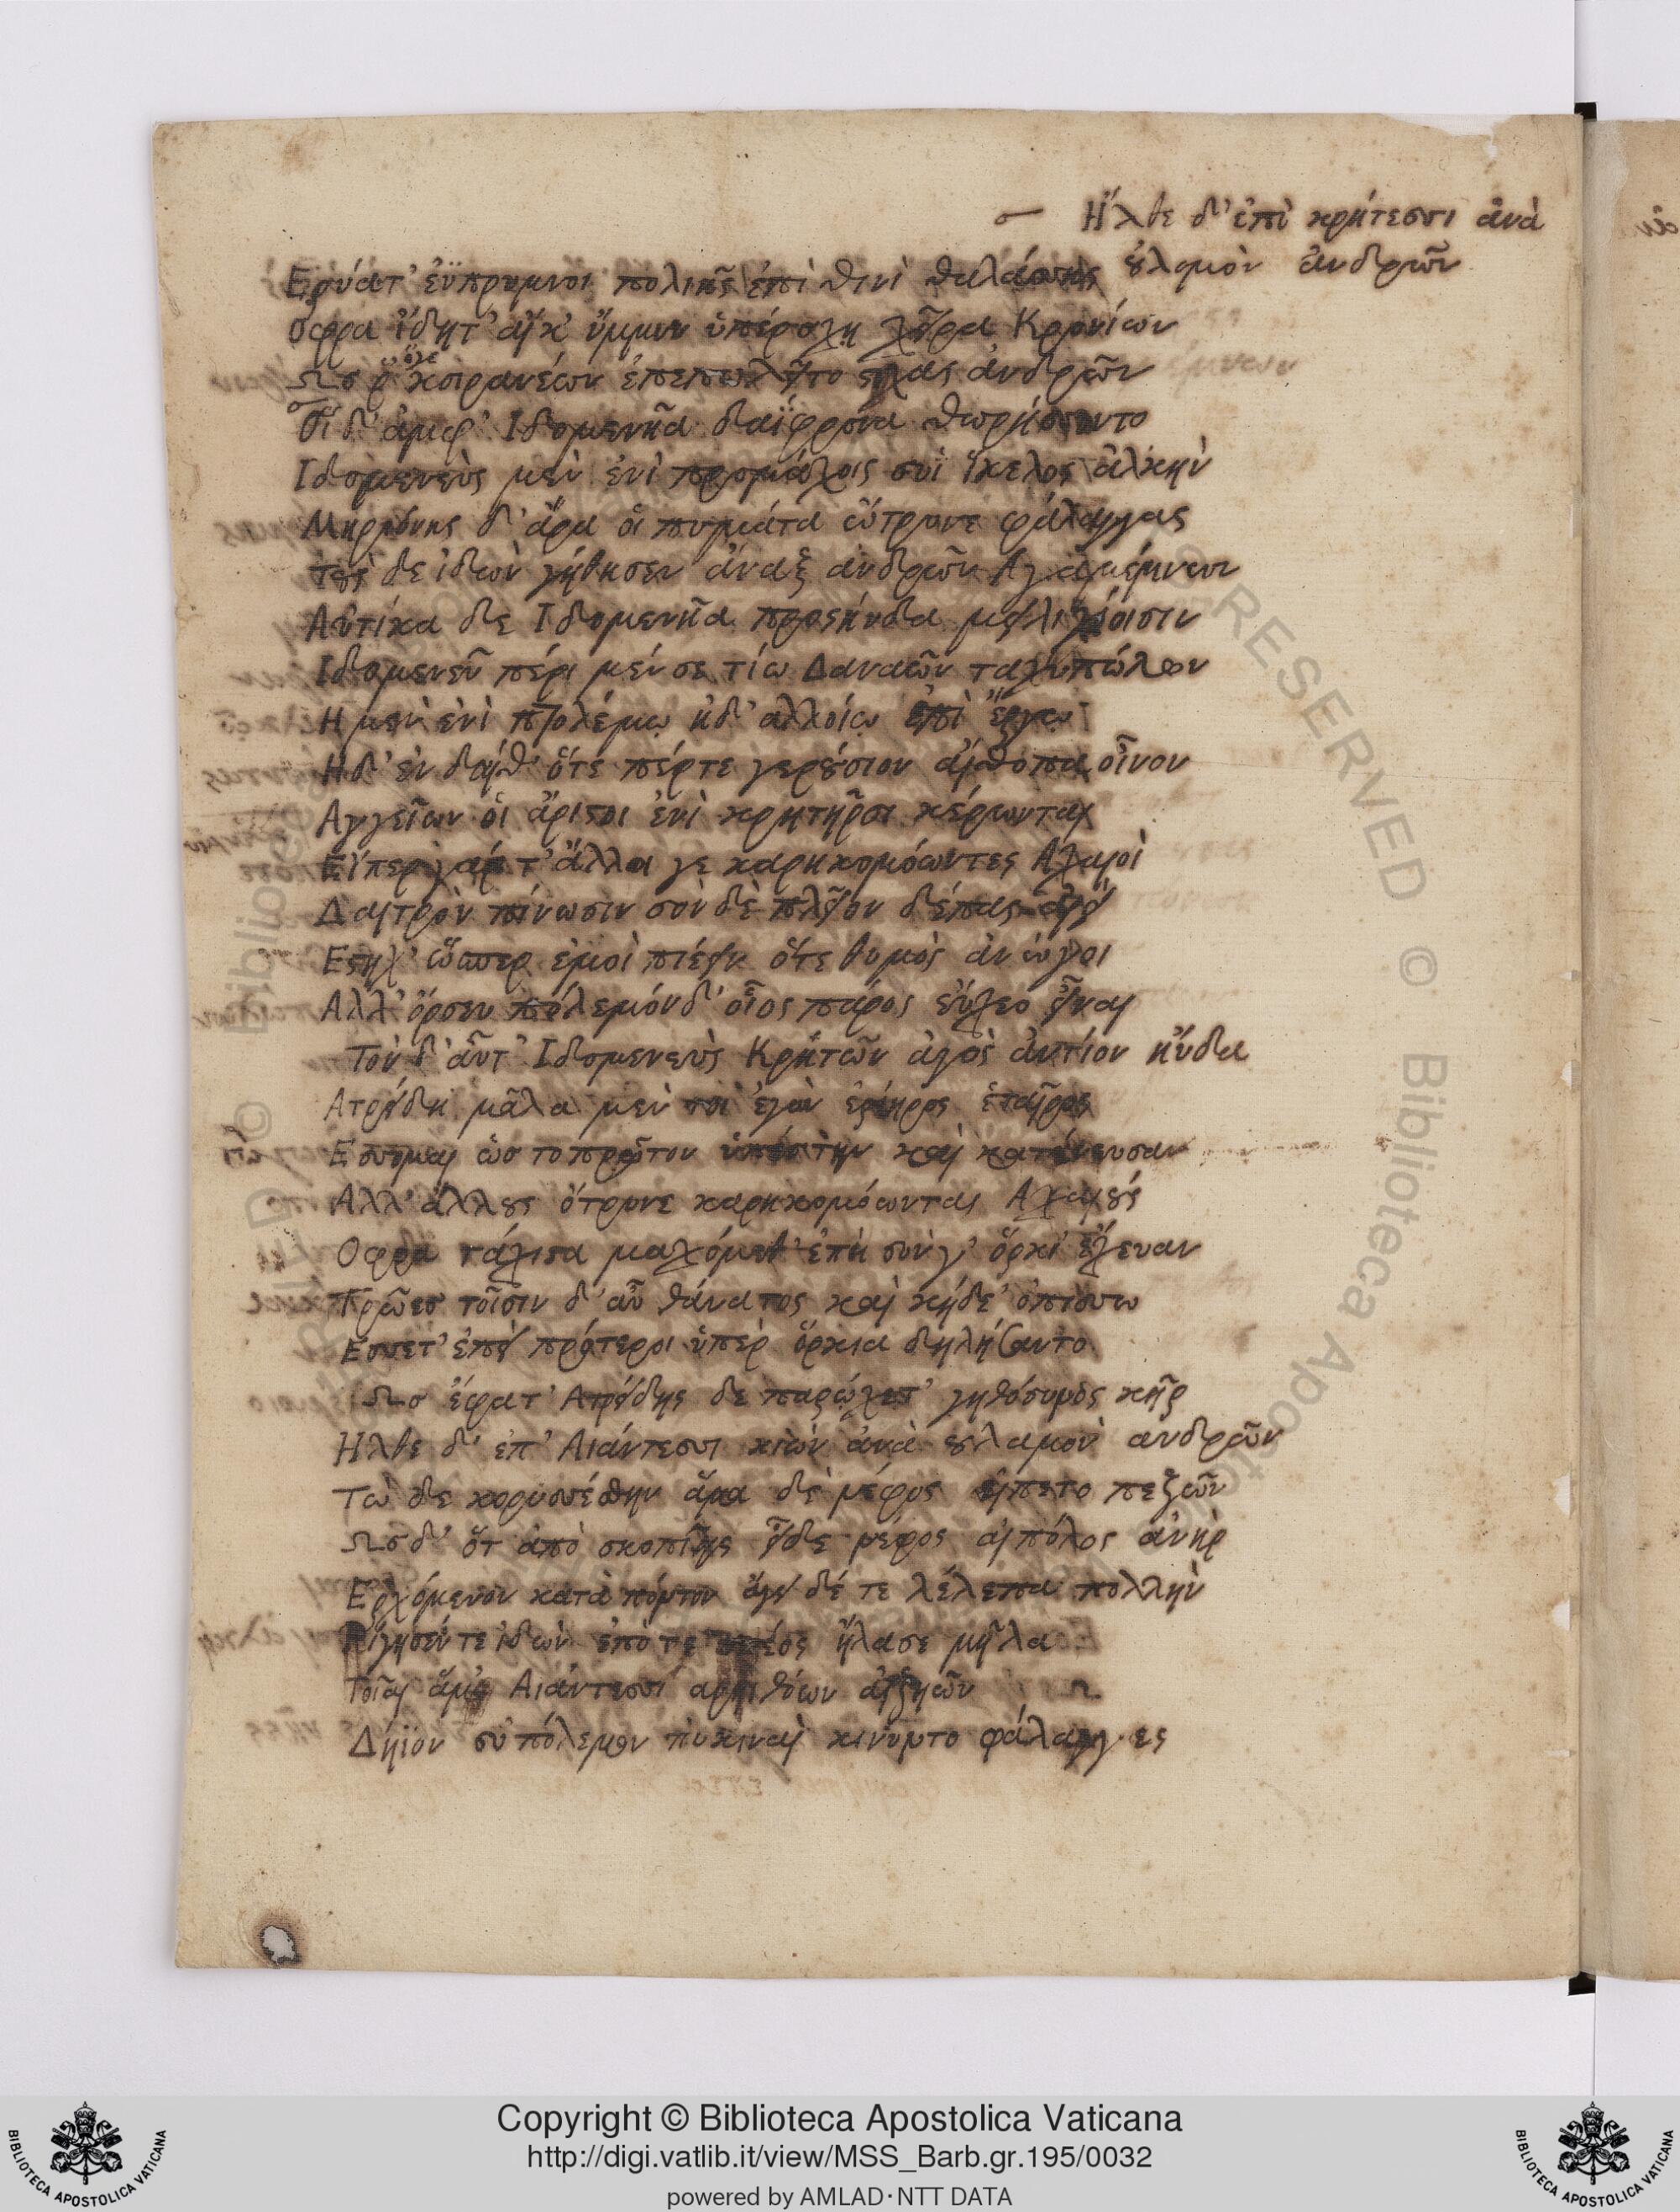 Ἤλθε δ' ἐπὶ κρήτεσσι ἀνὰ
οὐλαμὸν ἀνδρῶν
Ερύατ' ἐΰπρυμνοι πολιῆς ἐπὶ θινὶ θαλάσσης
οφρα ἴδητ' αἴκ' ὔμμιν ὑπέρσχη χεῖρα Κρονίων
ὅγε
Ωσ κοιρανέων ἐπεπωλεῖτο στίχας ἀνδρῶν
Οἱ δ' ἀμφ' Ιδομενῆα δαΐφρονα θωρήσσοντο
Ιδομενεὺς μὲν ἐνὶ προμάχοις συῒ ἴκελος ἀλκὴν
Μηριόνης δ' ἄρα οἱ πυμάτα ὤτρυνε φάλαγγας
τοὺς δε ἰδὼν γήθησεν ἄναξ ἀνδρῶν Αγαμέμνων
Αὐτίκα δε Ιδομενῆα προσηύδα μειλιχίοισιν
Ιδομενεῦ πέρι μέν σε τίω Δαναῶν ταχυπώλων
Η μὲν ἐνὶ πτολέμῳ ἠδ' αλλοίῳ ἐπὶ ἔργῳ
Ηδ' ἐν δαίθ' ὅτε πέρτε γερούσιον αἴθοπα οἶνον
Αργείων οἱ ἄριστοι ἐνὶ κρητῆρσι κέρωνται
Εἴπερ γάρ τ' ἄλλοι γε καρηκομόωντες Αχαιοὶ
Δαιτρὸν πίνωσιν σὸν δὲ πλεῖον δέπας αἰεὶ
Εστηχ' ὥσπερ ἐμοὶ πιέειν ὅτε θυμὸς ἀνώγοι
Αλλ' ὄρσευ πόλεμόνδ' οἷος πάρος εὔχεο εἶναι
Τὸν δ' αὖτ' Ιδομενεὺς Κρήτῶν ἀγὸς ἀντίον ηὔδα
Ατρείδη μᾶλα μὲν τοι ἐγὼν ἐρίηρος ἑταῖρος
Εσσομαι ὡσ τοπρῶτον ὑπέστην καὶ κατένευσαν
Αλλ' ἄλλους ὄτρυνε καρηκομόωντας Αχαιούς
Οφρα τάχιστα μαχόμεθ' ἐπὴ σύν γ' ὅρκι' ἔχευαν
Τρῶεσ τοῖσιν δ' αὖ θάνατος καὶ κήδε' ὀπίσσω
Εσσετ' ἐπεὶ πρότεροι ὑπὲρ ὅρκια δηλήσαντο
Ωσ ἔφατ' Ατρείδης δε παρῴχετ' γηθόσυνος κῆρ
Ηλθε δ' ἐπ' Αιάντεσσι κιὼν ἀνὰ οὐλαμὸν ανδρῶν
Τὼ δε κορυσσέσθην ἅμα δὲ νέφος εἵπετο πεζῶν
Ωσ δ' ὅτ ἀπὸ σκοπιῆς εἶδε νέφος αἰπόλος ἀνὴρ
Ερχόμενον κατὰ πόντον ἄγει δέ τε λέλαπα πολλὴν
Ρίγησέν τε ἰδὼν ὑπό τε σπέος ἤλασε μῆλα
Τοῖαι ἅμ' Αιάντεσσι αρηιθόων αἰζηῶν
Δήϊον ἐσ πόλεμον πυκιναὶ κίνυντο φάλαγγες
Copyright © Biblioteca Apostolica Vaticana
http://digi.vatlib.it/view/MSS_Barb.gr.195/0032
powered by AMLAD·NTT DATA